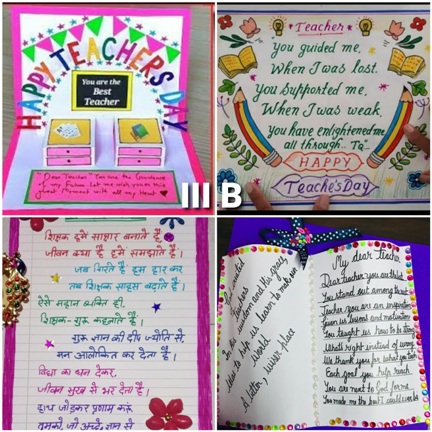 HAPPY TEACHERS DAY
You are the
Best
Teacher
"Dear Teacher
of my Future Let me wish you on this
great Moment with all my Heart
III B
Teacher
You guided me,
When I was lost.
You supported me,
When I was weak,
You have enlightened me
all through.. Tq"
HAPPY
Teache's Day
शिक्षक हमें साक्षर बनाते हैं,
जीवन क्या है हमें समझाते हैं।
जब गिरते हैं हम हार कर
तब शिक्षक साहस बढ़ाते हैं।
ऐसे महान व्यक्ति ही,
शिक्षक-गुरु कहलाते हैं।
गुरु ज्ञान की दीप ज्योति से,
मन आलोकित कर देता है।
विद्या का धन देकर,
जीवन सुख से भर देता है।
हाथ जोड़कर प्रणाम करूं
God created
Teachers
In his wisdom and his grace
To help us learn to make our
World
A better, wiser place
My dear teacher
Dear teacher you are the best
You stand out among the rest
Teacher you are an inspiration
Given us lessons and motivation
You taught us how to be strong
What's right instead of wrong
We thank you for what you teach
Each goal you help reach
You are next to God for me
You made me the best I could ever be